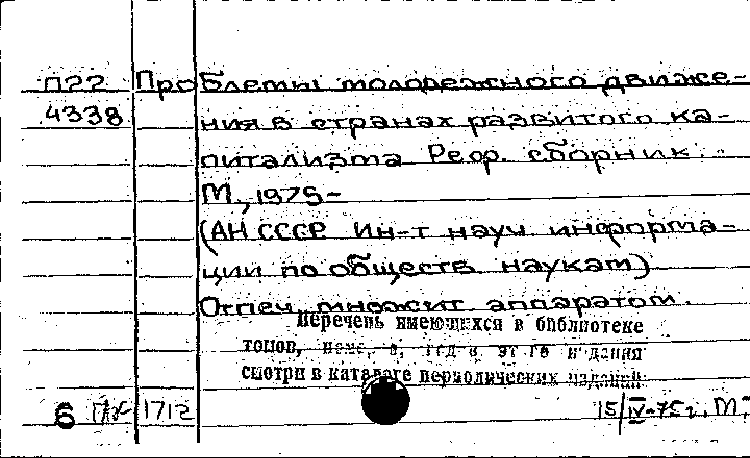 П22 Проблемы молодежного движе-
4338 ния в странах развитого ка-
питализма. Реф. сборник.
М., 1975-
(АН СССР. Ин-т науч. информа-
ции по обществ. наукам)
Отпеч. множит. аппаратом.
Перечень имеющихся в библиотеке
томов, издания
смотри в каталоге периодических изданий
6 1712 15/IV-75г. М.